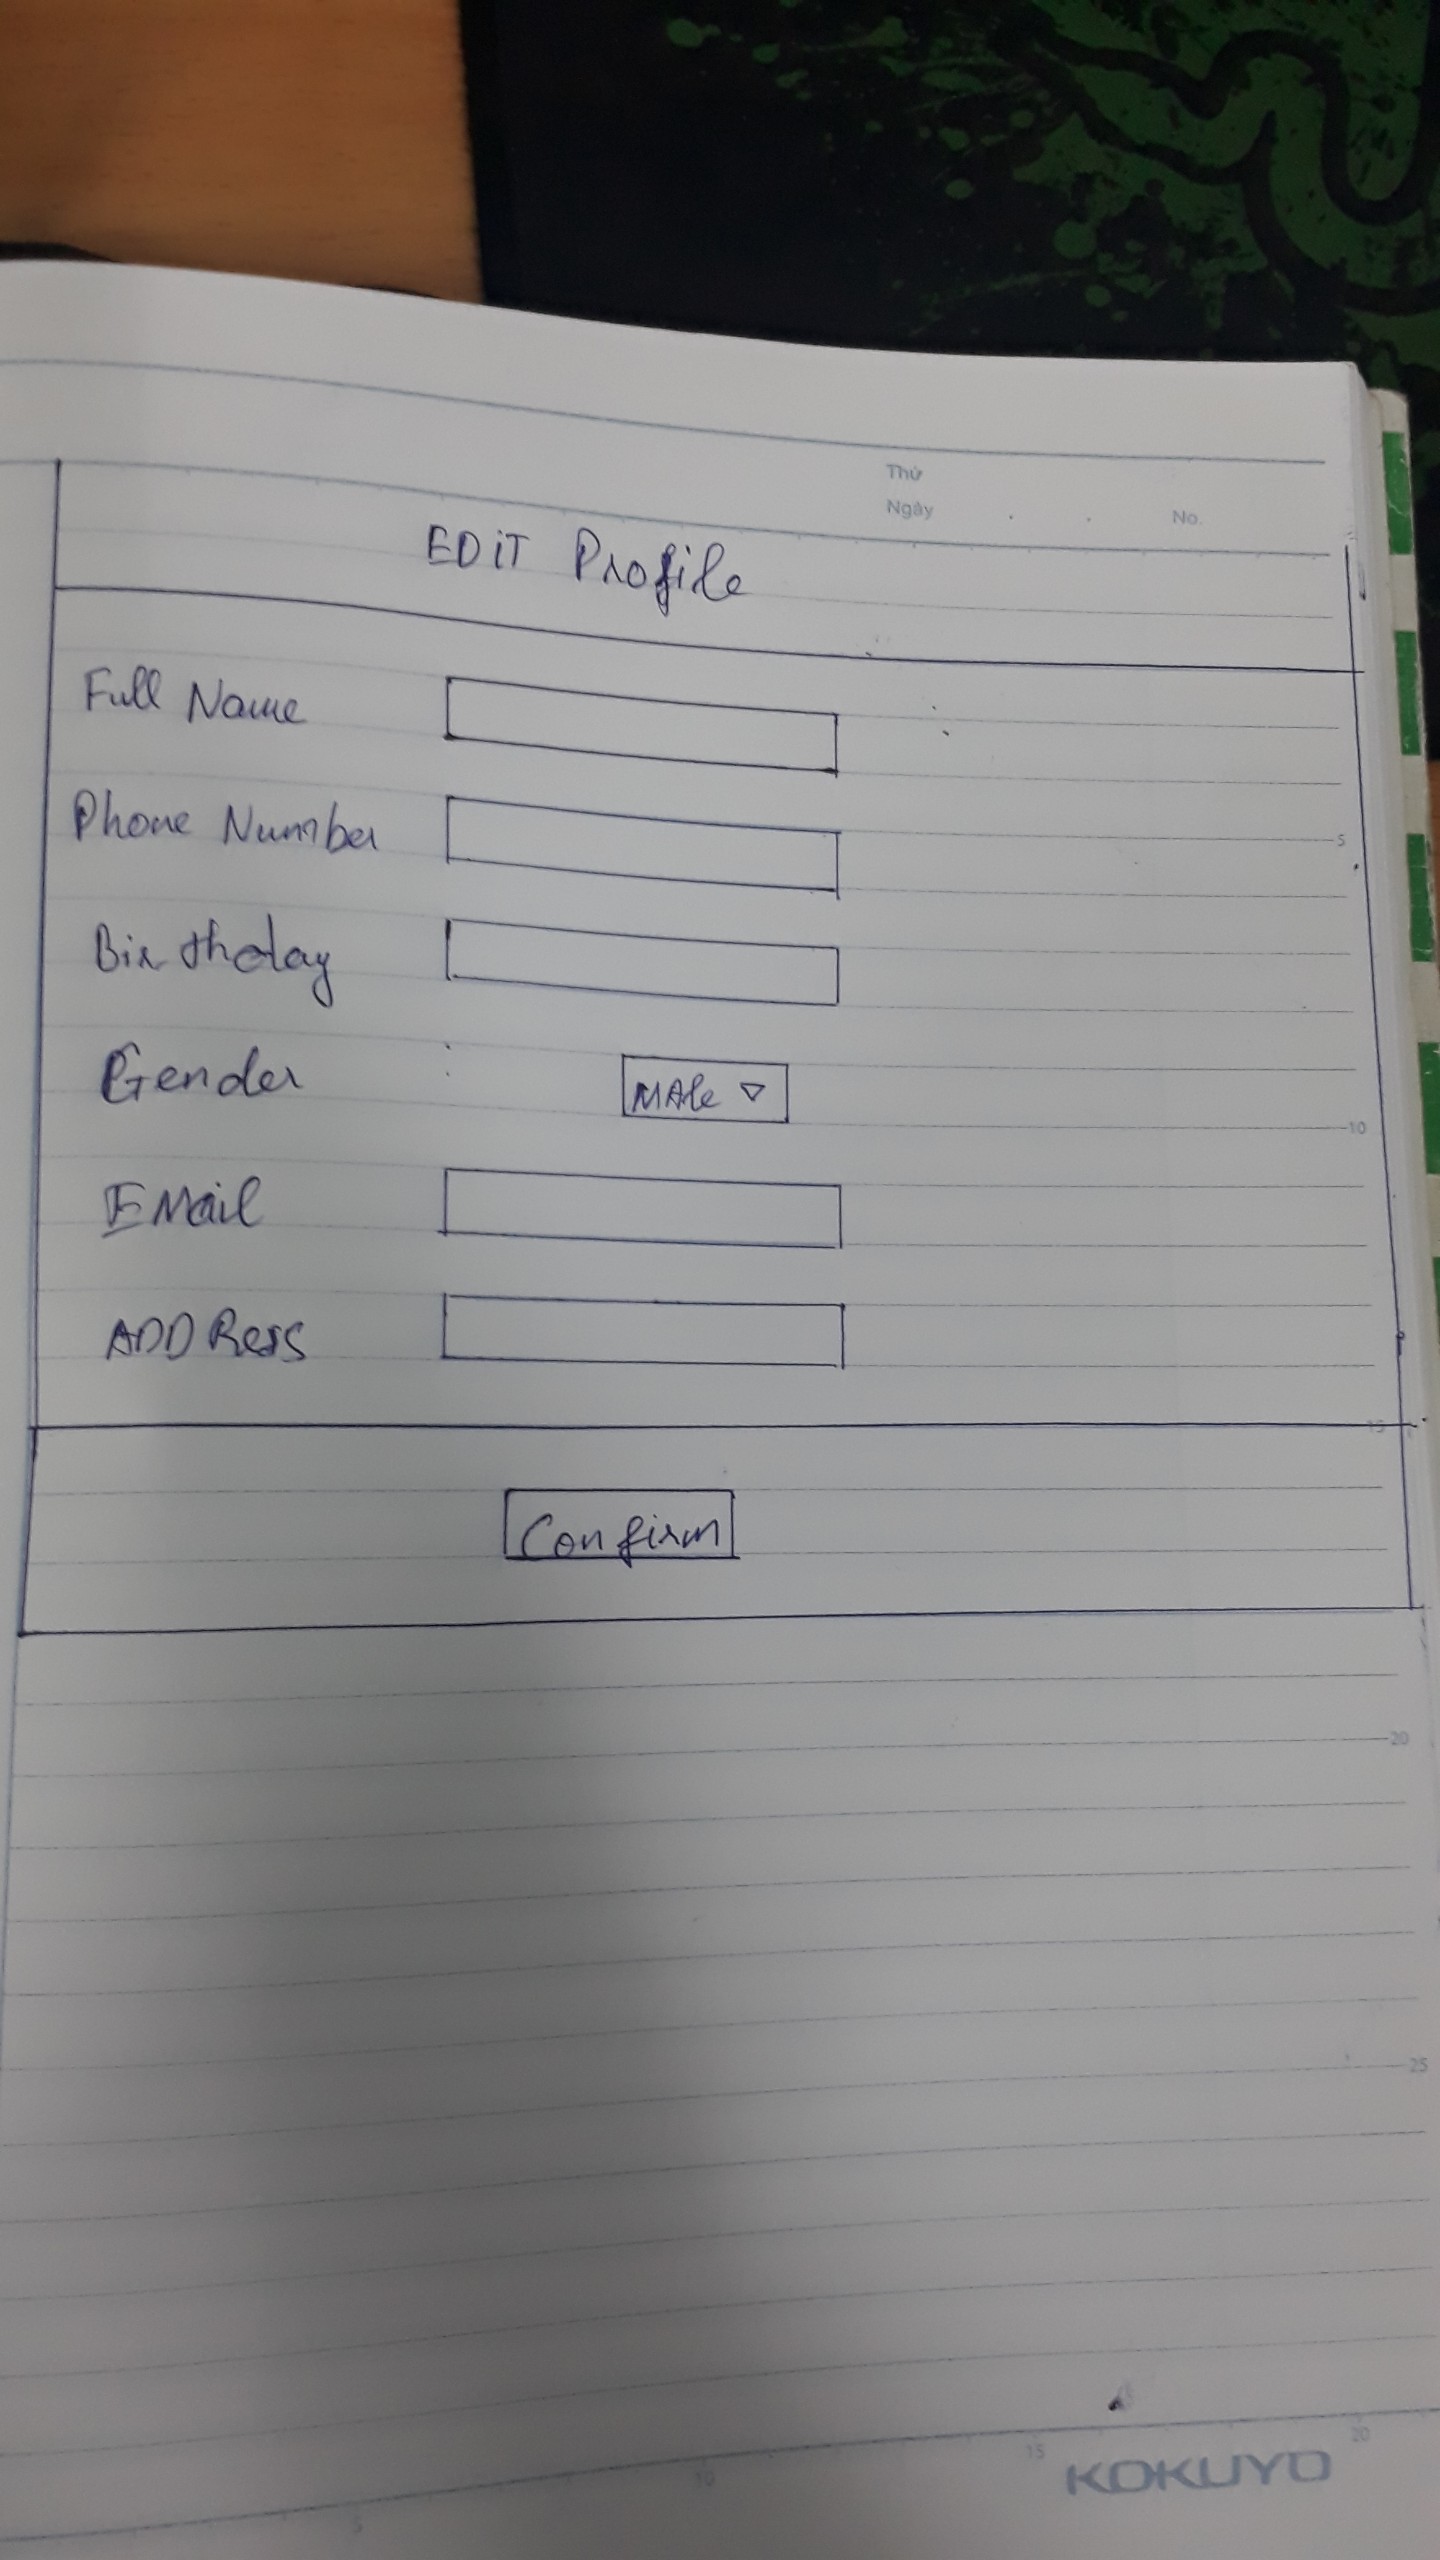 Thứ
Ngày . . No.
EDiT Profile
Full Name
Phone Number
5
Birthday
Gender :
MAle ▽
10
EMail
ADDRess
15
Confirm
20
25
5 10 15 20
KOKUYO